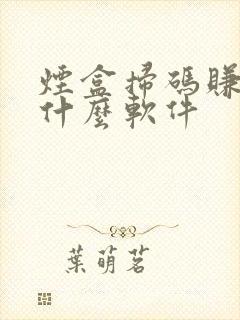 煙盒掃碼賺
什麼軟件
葉萌茗